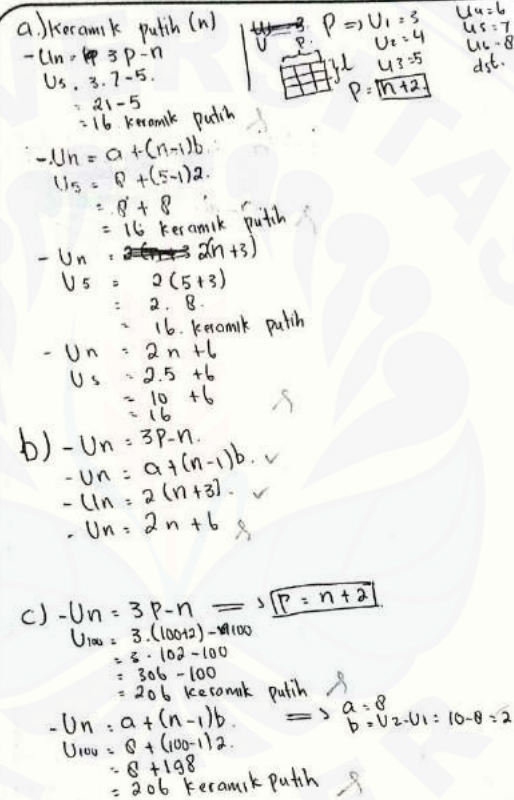 a.) Keramik putih (n)
- Un = 3P-n
U5 . 3.7-5.
= 21-5
= 16 keramik putih
P => U1 = 3
U2 = 4
U3 = 5
U4 = 6
U5 = 7
U6 = 8
dst.
P.
l
P = n+2.
- Un = a + (n-1)b.
U5 = 8 + (5-1)2.
= 8 + 8
= 16 keramik putih
- Un = 2(n+3)
U5 = 2(5+3)
= 2. 8.
= 16. keramik putih
- Un = 2n + 6
U5 = 2.5 + 6
= 10 + 6
= 16
b) - Un = 3P-n.
- Un = a + (n-1)b.
- Un = 2(n+3).
- Un = 2n + 6
c) - Un = 3P-n => P = n+2
U100 = 3.(100+2) - 100
= 3. 102 - 100
= 306 - 100
= 206 keramik putih
- Un = a + (n-1)b. => a = 8
b = U2-U1 = 10-8 = 2
U100 = 8 + (100-1)2.
= 8 + 198
= 206 keramik putih